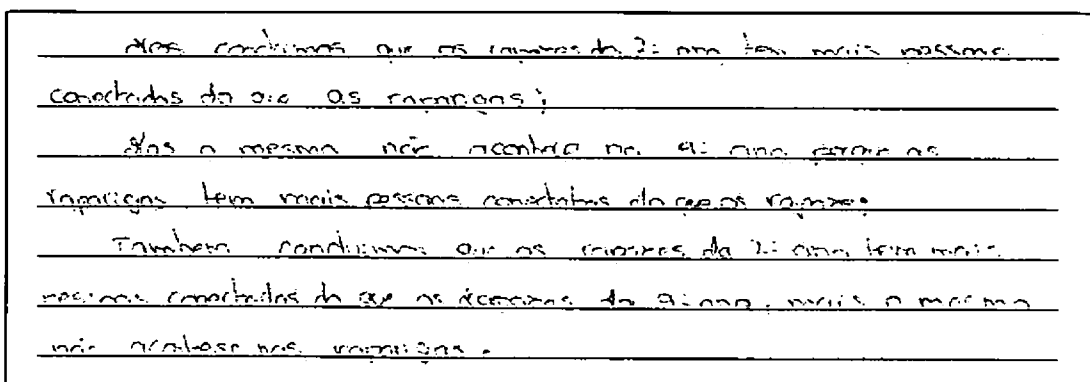 Nós concluimos que os rapazes do 7º ano tem mais pessoas
conectadas do que as raparigas;
Mas o mesmo não acontece no 9º ano porque as
raparigas tem mais pessoas conectadas do que os rapazes.
Tambem concluimos que os rapazes do 7º ano tem mais
pessoas conectadas do que os do 9º ano, mais o mesmo
não nas raparigas.